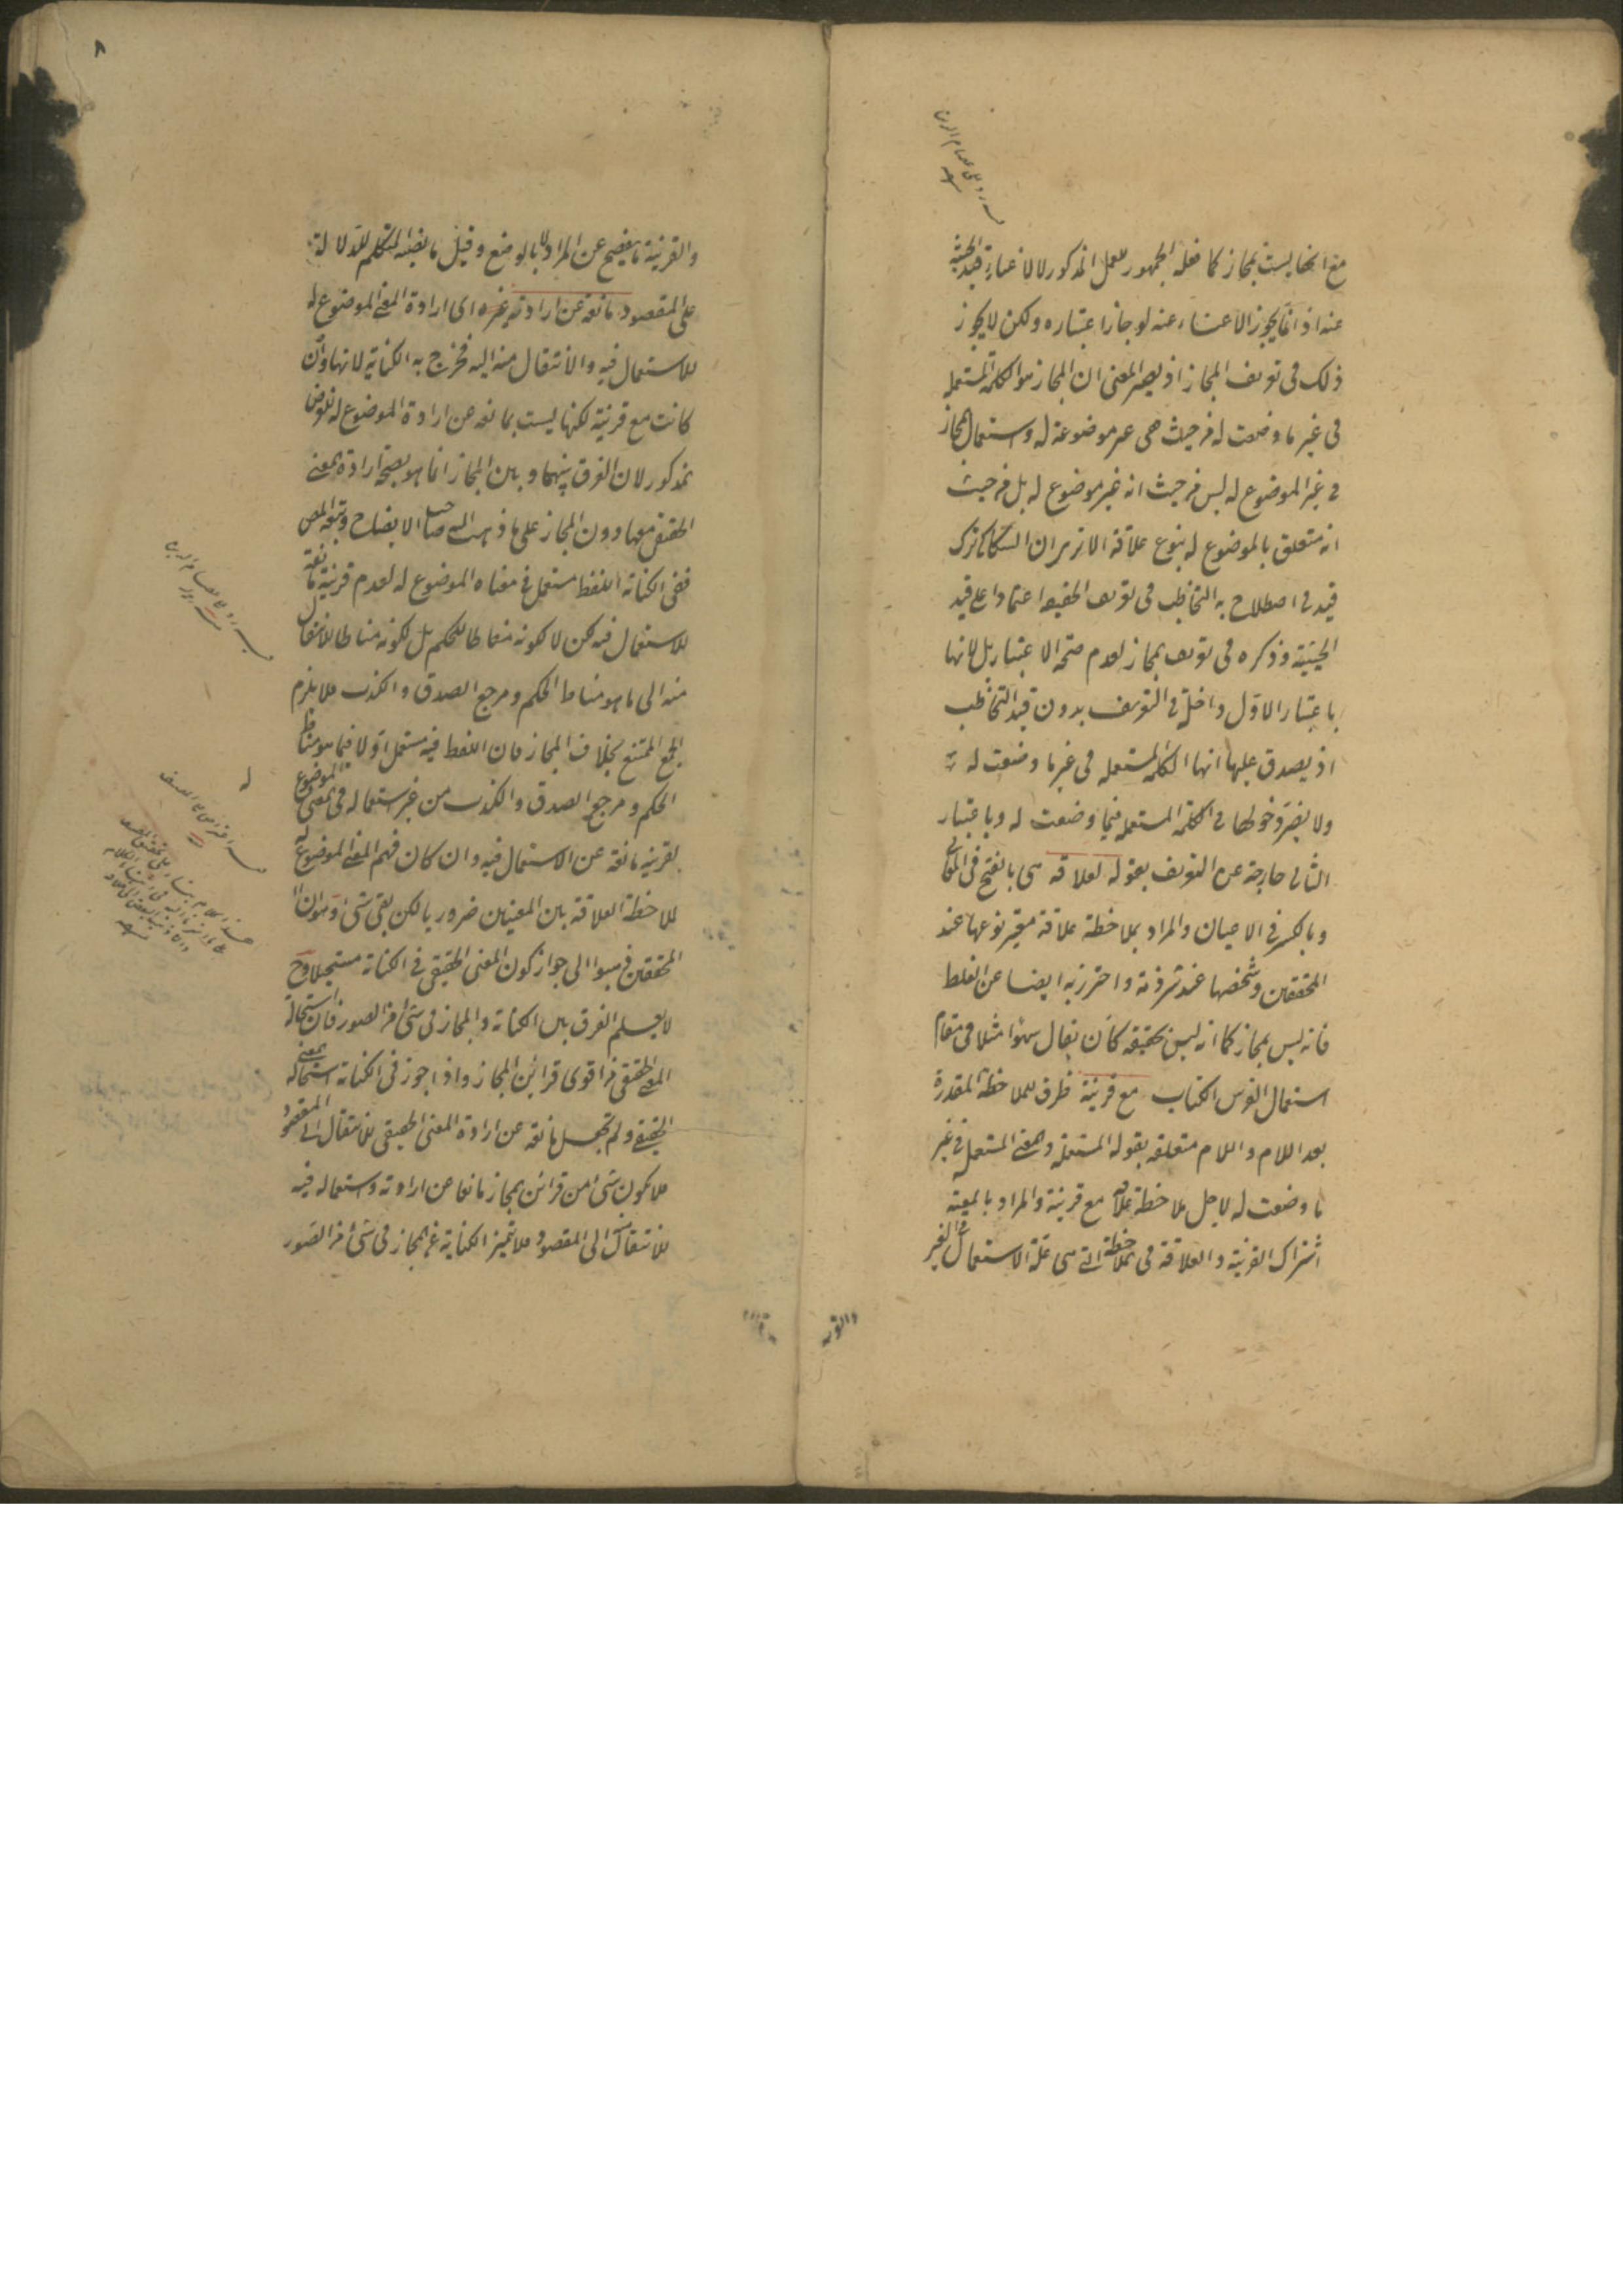 مع انها ليست بمجاز كما فعله الجمهور للعمل المذكور لا لاغناء قيد الحيثية
عنه اذ انما يجوز الاغناء عنه لو جاز اعتباره ولكن لا يجوز
ذلك فى تعريف المجاز اذ يصير المعنى ان المجاز هو الكلمة المستعملة
فى غير ما وضعت له من حيث هى غير موضوعة له واستعمال المجاز
فى غير الموضوع له ليس من حيث انه غير موضوع له بل من حيث
انه متعلق بالموضوع له بنوع علاقة الا ترى ان السكاكى ترك
قيد فى اصطلاح به التخاطب فى تعريف الحقيقة اعتمادا على قيد
الحيثية وذكره فى تعريف المجاز لعدم صحة الاعتبار بل لانها
باعتبار الاول داخلة فى التعريف بدون قيد التخاطب
اذ يصدق عليها انها الكلمة المستعملة فى غير ما وضعت له
ولا يضر دخولها فى الكلمة المستعملة فيما وضعت له وباعتبار
الثانى خارجة عن التعريف بقوله لعلاقة هى بالفتح فى المعانى
وبالكسر فى الاعيان والمراد بملاحظة علاقة معتبر نوعها عند
المحققين وشخصها عند شرذمة واحترز به ايضا عن الغلط
فانه ليس بمجاز كما انه ليس بحقيقة كأن يقال سهوا مثلا فى مقام
استعمال الفرس الكتاب مع قرينة ظرف للملاحظة المقدرة
بعد اللام واللام متعلقة بقوله المستعملة والمعنى المستعمل فى غير
ما وضعت له لاجل ملاحظة علاقة مع قرينة والمراد بالمعية
اشتراك القرينة والعلاقة فى الملاحظة التى هى علة الاستعمال فى الغير
والقر
٨
والقرينة ما يفصح عن المراد لا بالوضع وقيل ما نصبه المتكلم للدلالة
على المقصود مانعة عن ارادته غيره اى ارادة المعنى الموضوع له
للاستعمال فيه والانتقال منه اليه فخرج به الكناية لانها وان
كانت مع قرينة لكنها ليست بمانعة عن ارادة الموضوع له للغرض
المذكور لان الفرق بينها وبين المجاز انما هو بصحة ارادة المعنى
الحقيقى معها دون المجاز على ما ذهب اليه صاحب الايضاح وتبعه المص
ففى الكناية اللفظ مستعمل فى معناه الموضوع له لعدم قرينة مانعة
للاستعمال فيه لكن لا لكونه مناطا للحكم بل لكونه مناطا للانتقال
منه الى ما هو مناط الحكم ومرجع الصدق والكذب فلا يلزم
الجمع الممتنع بخلاف المجاز فان اللفظ فيه مستعمل اولا فيما هو مناط
الحكم ومرجع الصدق والكذب من غير استعماله فى المعنى الموضوع له
لقرينة مانعة عن الاستعمال فيه وان كان فهم المعنى الموضوع له
لملاحظة العلاقة بين المعنيين ضروريا لكن بقى شئ وهو ان
المحققين ذهبوا الى جواز كون المعنى الحقيقى فى الكناية مستحيلا وح
لا يعلم الفرق بين الكناية والمجاز فى شئ من الصور فان استحالة
المعنى الحقيقى من اقوى قرائن المجاز واذا جوز فى الكناية استحالة المعنى
الحقيقى ولم تجعل مانعة عن ارادة المعنى الحقيقى للانتقال الى المقصود
فلا يكون شئ من قرائن المجاز مانعا عن ارادته واستعماله فيه
للانتقال منه الى المقصود فلا تتميز الكناية عن المجاز فى شئ من الصور